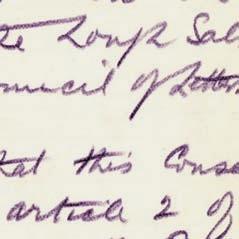 the Lough Sal
ouncil of Letter
hat this Conse
article 2 of